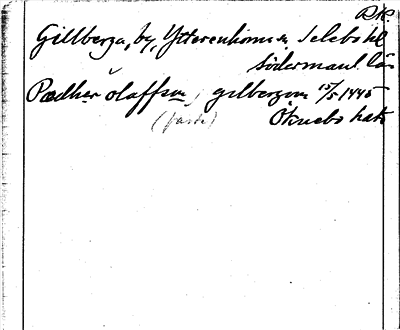 Rk.
Gillberga, by, Ytterenhörna sn, Selebo hd
Södermanl. län
Pædher olaffson j gilbergom 15/5 1445
(faste) Öknebo häR